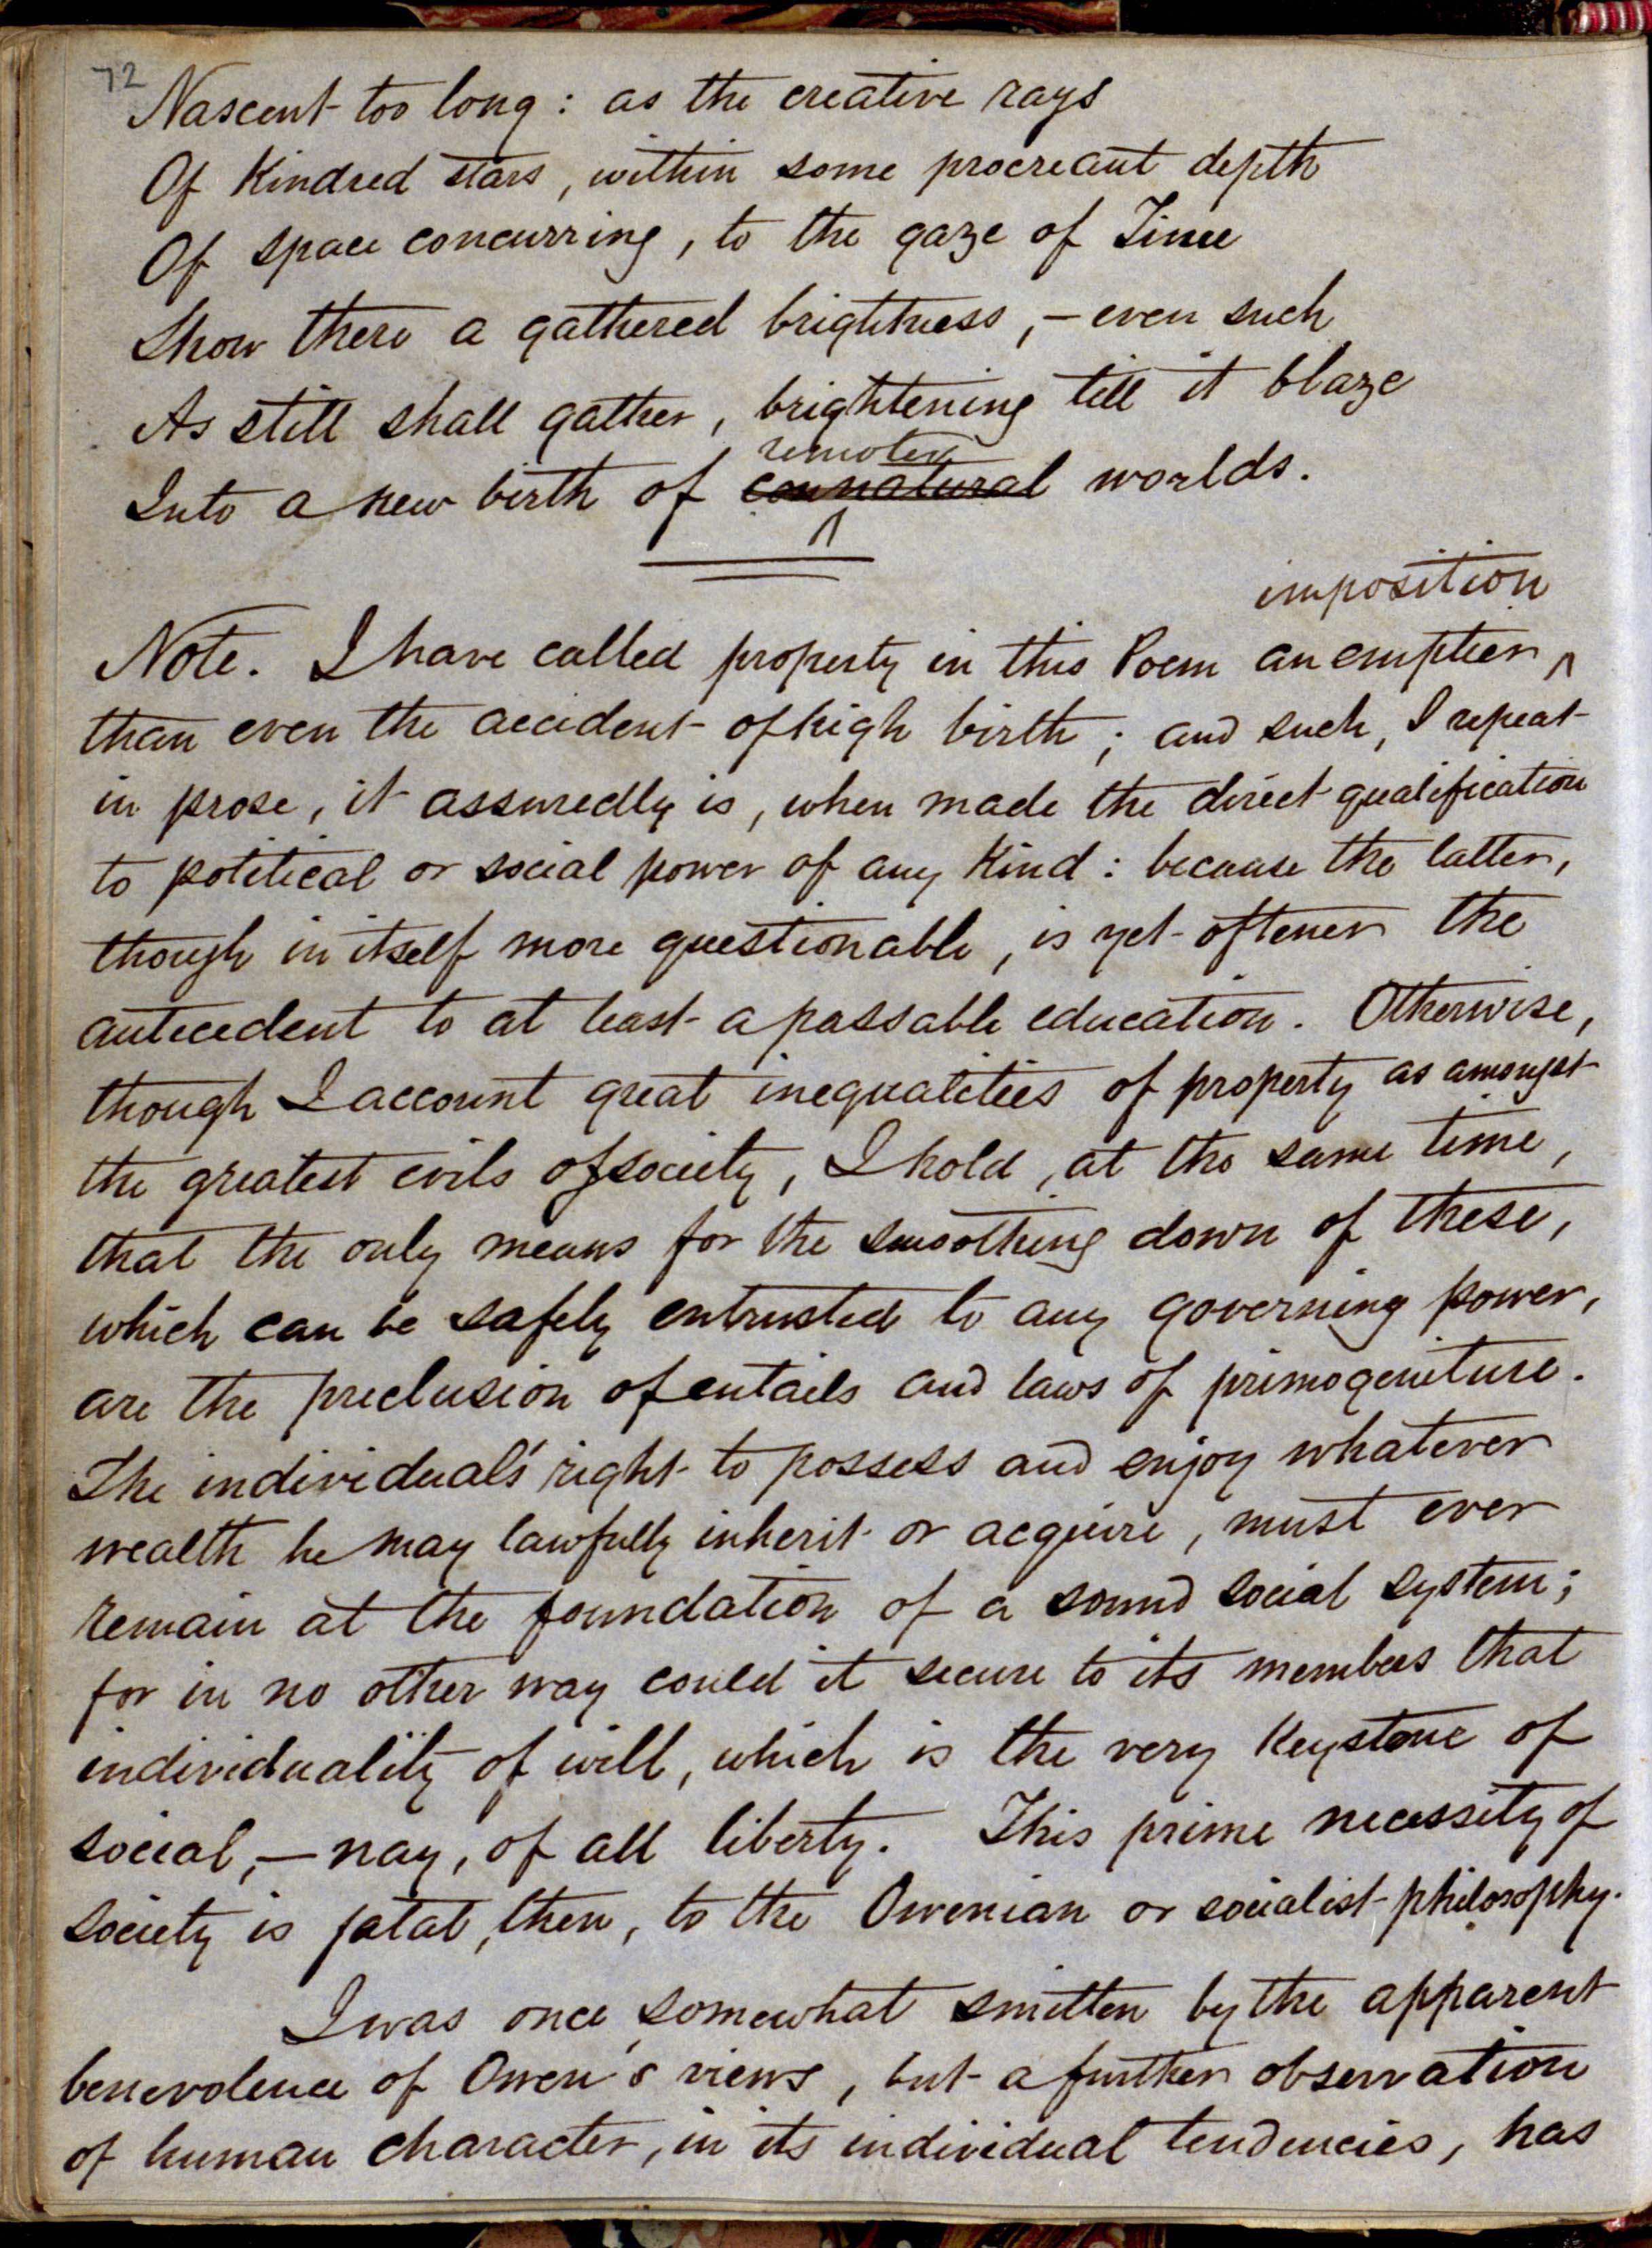 72
Nascent too long: as the creative rays
Of Kindred stars, within some procreant depth
Of space concurring, to the gaze of Time
Show there a gathered brightness, – even such
As still shall gather, brightening till it blaze
remoter
Into a new birth of connatural worlds.
imposition
Note. I have called property in this Poem an emptier ^
than even the accident of high birth; and such, I repeat
in prose, it assuredly is, when made the direct qualification
to political or social power of any Kind: because the latter,
though in itself more questionable, is yet oftener the
antecedent to at least a passable education. Otherwise,
though I account great inequalities of property as amongst
the greatest evils of society, I hold, at the same time,
that the only means for the smoothing down of these,
which can be safely entrusted to any governing power,
are the preclusion of entails and laws of primogeniture.
The individual's right to possess and enjoy whatever
wealth he may lawfully inherit or acquire, must ever
remain at the foundation of a sound social system;
for in no other way could it secure to its members that
individuality of will, which is the very Keystone of
social, – nay, of all liberty. This prime necessity of
society is fatal, then, to the Owenian or socialist philosophy.
I was once somewhat smitten by the apparent
benevolence of Owen's views, but a further observation
of human character, in its individual tendencies, has